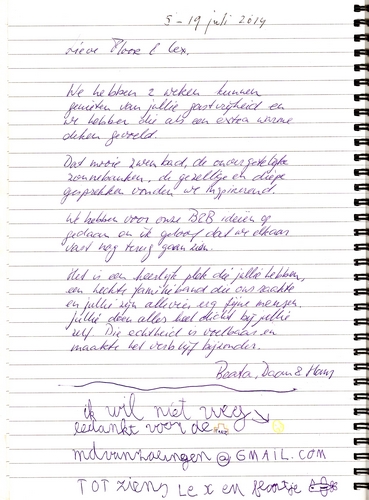 5 - 19 juli 2014
Lieve Floor & Lex,
We hebben 2 weken kunnen
genieten van jullie gastvrijheid en
we hebben die als een extra warme
deken gevoeld.
Dat mooie zwembad, de onvergetelijke
zonnebanken, de gezellige en diepe
gesprekken vonden we inspirerend.
We hebben voor onze B&B ideeën op
gedaan en ik geloof dat we elkaar
vast nog terug gaan zien.
Het is een heerlijk plek die jullie hebben,
een hechte familieband die ons raakte
en jullie zijn allevier erg fijne mensen.
Jullie doen alles heel dicht bij jullie
zelf. Die echtheid is voelbaar en
maakte het verblijf bijzonder.
Beata, Daan & Hans
ik wil niet weg
bedankt voor de
mdvanzalingen@GMAIL.COM
TOT ziens Lex en